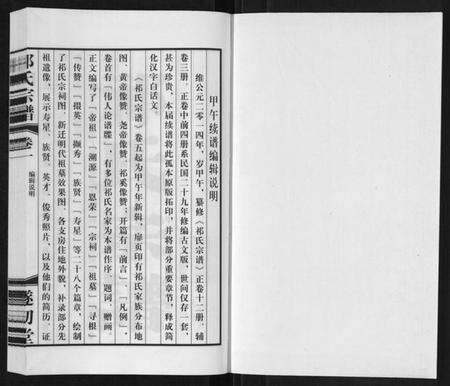 甲午续谱编辑说明
维公元二〇一四年，岁甲午，纂修《祁氏宗谱》正卷十二册，辅
卷三册。正卷中前四册系民国二十九年修编古文版，世间仅存一套，
甚为珍贵。本届续谱将此孤本原版拓印，并将部分重要章节，释成简
化汉字白话文。
《祁氏宗谱》卷五起为甲午年新辑，扉页印有祁氏家族分布地
图、黄帝像赞、尧帝像赞、祁奚像赞。开篇有「前言」、「凡例」，
卷首有「伟人论谱牒」，有多位祁氏名家为本谱作序、题词、赠画。
正文编写了「帝祖」「溯源」「恩荣」「宗祠」「祖墓」「寻根」
「传赞」「撷英」「撷秀」「族贤」「寿星」等二十八个篇章，绘制
了祁氏宗祠图、新迁明代祖墓效果图、各支房住地外貌，补录部分先
祖遗像，展示寿星、族贤、英才、俊秀照片，以及他们的简历、证
祁氏宗谱
卷一
编辑说明